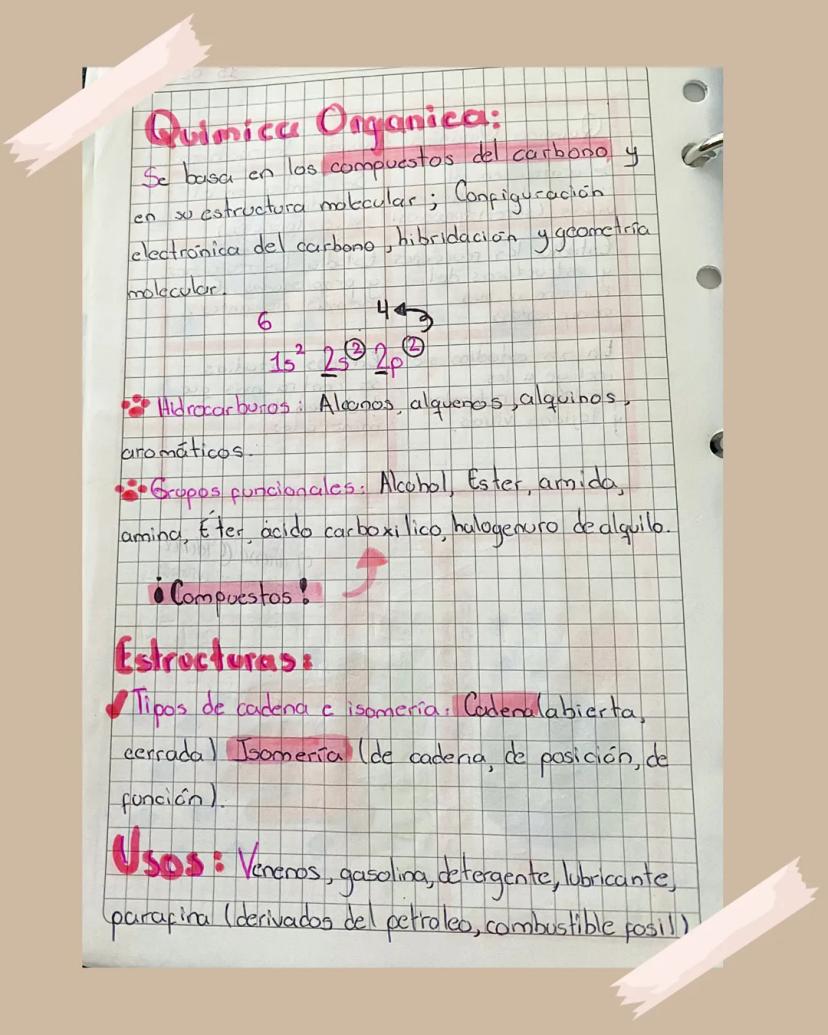 Química Organica:
Se basa en los compuestos del carbono y
en su estructura molecular; Configuración
electrónica del carbono, hibridación y geometría
molecular.
6 4
1s² 2s² 2p²
Hidrocarburos: Alcanos, alquenos, alquinos,
aromáticos.
Grupos funcionales: Alcohol, Ester, amida,
amina, Éter, ácido carboxilico, halogenuro de alquilo.
¡Compuestos!
Estructuras:
Tipos de cadena e isomería: Cadena (abierta,
cerrada) Isomería (de cadena, de posición, de
función).
Usos: Venenos, gasolina, detergente, lubricante,
parafina (derivados del petroleo, combustible fosil)